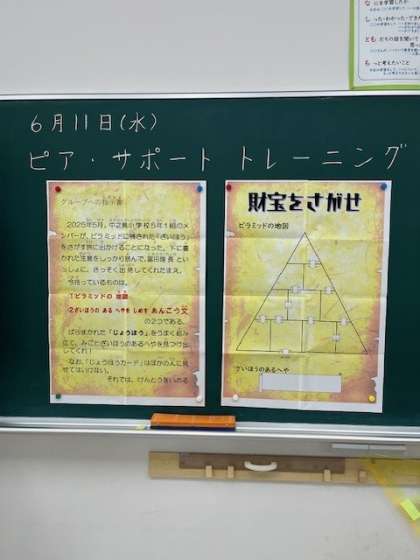 なにを学習したか
し った・わかった・でき
と も だちの話を聞いて
も っと考えたいこと
6月11日(水)
ピア・サポート トレーニング
グループへの指示書
2025年5月、中之島小学校5年1組のメ
ンバーが、ピラミッドに隠された「ざいほう」
をさがす旅に出かけることになった。下に書
かれた注意をしっかり読んで、冨田隊長とい
っしょに、さっそく出発してくれたまえ。
今持っているものは、
①ピラミッドの 地図
②ざいほうの ある へやを しめす あんごう文
の2つである。
ばらまかれた「じょうほう」をうまく組み
立て、みごとざいほうのあるへやを見つけ出
してくれ!
なお、「じょうほうカード」はほかの人に見
せてはいけない。
それでは、けんとうをいのる
財宝をさがせ
ピラミッドの地図
ざいほうのあるへや